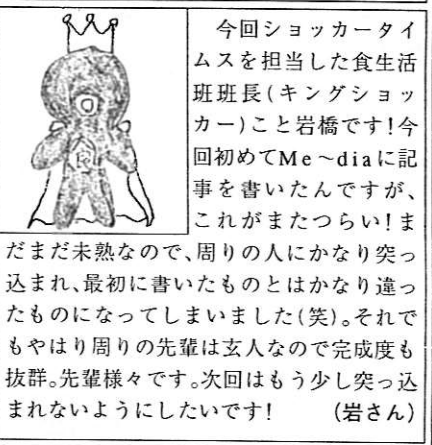 今回ショッカータイ
ムスを担当した食生活
班班長(キングショッ
カー)こと岩橋です!今
回初めてMe～diaに記
事を書いたんですが、
これがまたつらい!ま
だまだ未熟なので、周りの人にかなり突っ
込まれ、最初に書いたものとはかなり違っ
たものになってしまいました(笑)。それで
もやはり周りの先輩は玄人なので完成度も
抜群。先輩様々です。次回はもう少し突っ込
まれないようにしたいです! (岩さん)